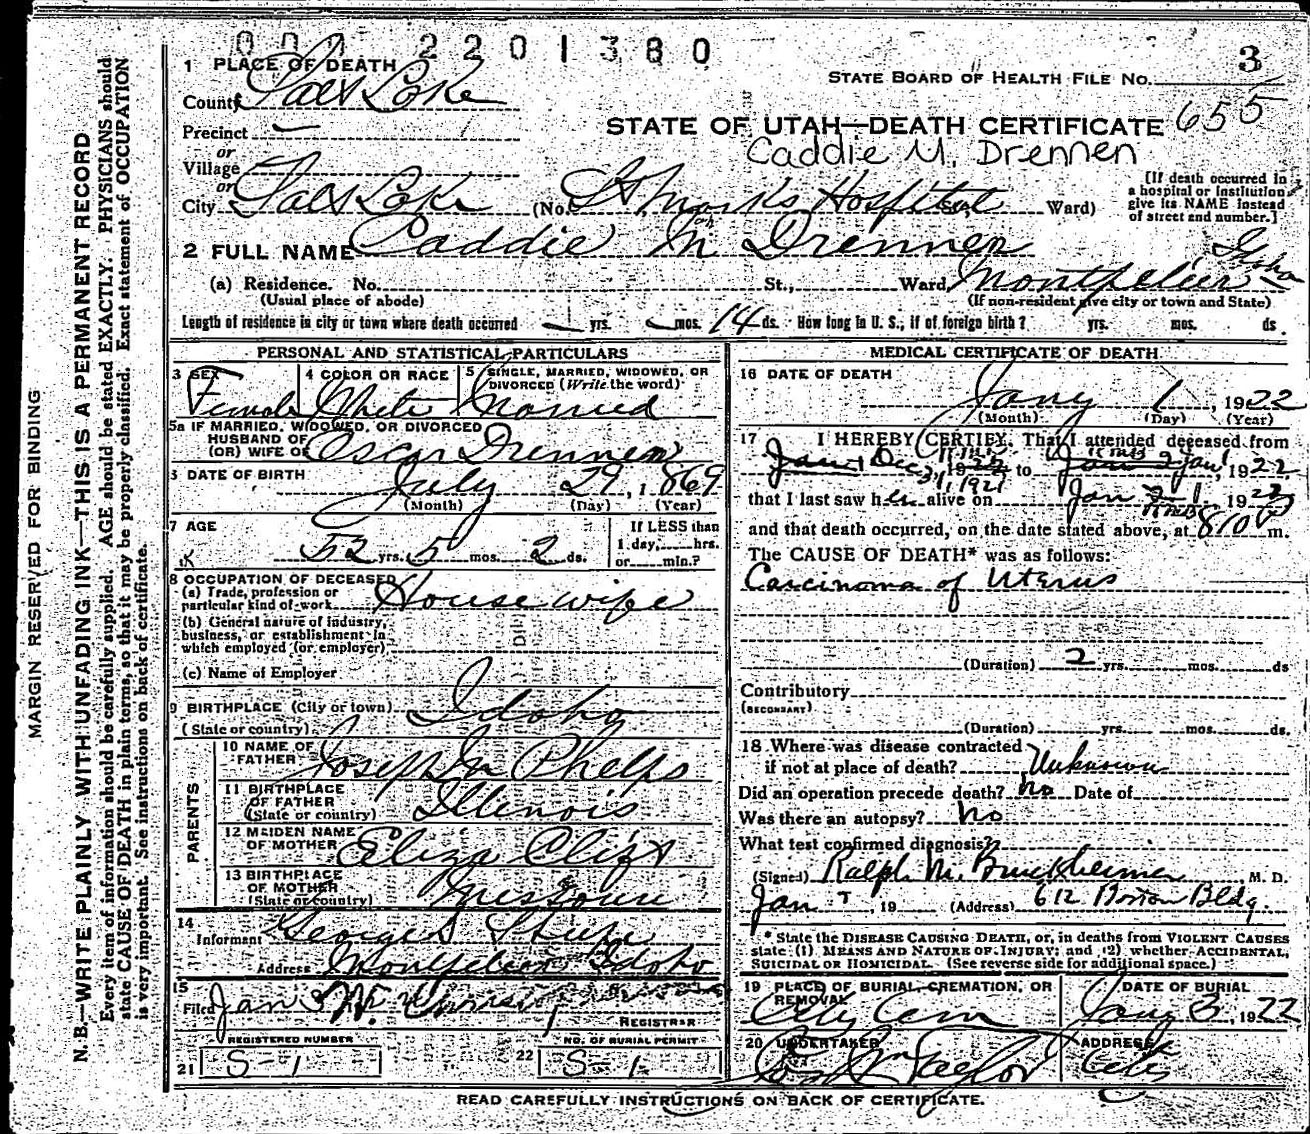 000 2201380
3
1 PLACE OF DEATH
STATE BOARD OF HEALTH FILE No. 655
County Salt Lake
STATE OF UTAH—DEATH CERTIFICATE
Caddie M. Drennen
Precinct —
or
Village
or
City Salt Lake (No. St Mark's Hospital St. Ward)
[If death occurred in
a hospital or institution
give its NAME instead
of street and number.]
2 FULL NAME Caddie M Drennen
(a) Residence. No. St., Ward, Montpelier, Idaho
(Usual place of abode) (If non-resident give city or town and State)
Length of residence in city or town where death occurred — yrs. — mos. 14 ds. How long in U. S., if of foreign birth? yrs. mos. ds.
PERSONAL AND STATISTICAL PARTICULARS
3 SEX Female
4 COLOR OR RACE White
5 SINGLE, MARRIED, WIDOWED, OR
DIVORCED (Write the word) Married
5a IF MARRIED, WIDOWED, OR DIVORCED
HUSBAND OF
(OR) WIFE OF Oscar Drennen
6 DATE OF BIRTH July 29, 1869
(Month) (Day) (Year)
7 AGE 52 yrs. 5 mos. 2 ds.
If LESS than
1 day, hrs.
or min.?
8 OCCUPATION OF DECEASED
(a) Trade, profession or
particular kind of work House wife
(b) General nature of industry,
business, or establishment in
which employed (or employer)
(c) Name of Employer
9 BIRTHPLACE (City or town) Idaho
(State or country)
PARENTS
10 NAME OF
FATHER Joseph M Phelps
11 BIRTHPLACE
OF FATHER
(State or country) Illinois
12 MAIDEN NAME
OF MOTHER Eliza Clift
13 BIRTHPLACE
OF MOTHER
(State or country) Missouri
14
Informant George
Address Montpelier Idaho
15
Filed Jan 3
REGISTRAR
REGISTERED NUMBER
21 S-1
NO. OF BURIAL PERMIT
22 S-1
MEDICAL CERTIFICATE OF DEATH
16 DATE OF DEATH
Jany 1, 1922
(Month) (Day) (Year)
17 I HEREBY CERTIFY, That I attended deceased from
Dec 31, 1921 to Jan 1, 1922
that I last saw her alive on Jan 1 1922
and that death occurred, on the date stated above, at 810 P m.
The CAUSE OF DEATH* was as follows:
Carcinoma of Uterus
(Duration) 2 yrs. mos. ds
Contributory
(SECONDARY)
(Duration) yrs. mos. ds.
18 Where was disease contracted
if not at place of death? Unknown
Did an operation precede death? No Date of
Was there an autopsy? No
What test confirmed diagnosis?
(Signed) Ralph M. M. D.
Jan , 19 (Address) 612 Boston Bldg.
* State the DISEASE CAUSING DEATH, or, in deaths from VIOLENT CAUSES
state (1) MEANS AND NATURE OF INJURY; and (2) whether ACCIDENTAL,
SUICIDAL OR HOMICIDAL. (See reverse side for additional space.)
19 PLACE OF BURIAL, CREMATION, OR
REMOVAL City Cem
DATE OF BURIAL
Jany 3, 1922
20 UNDERTAKER
Taylor
ADDRESS
City
READ CAREFULLY INSTRUCTIONS ON BACK OF CERTIFICATE.
MARGIN RESERVED FOR BINDING
N. B.—WRITE PLAINLY WITH UNFADING INK—THIS IS A PERMANENT RECORD
Every item of information should be carefully supplied. AGE should be stated EXACTLY. PHYSICIANS should
state CAUSE OF DEATH in plain terms, so that it may be properly classified. Exact statement of OCCUPATION
is very important. See instructions on back of certificate.